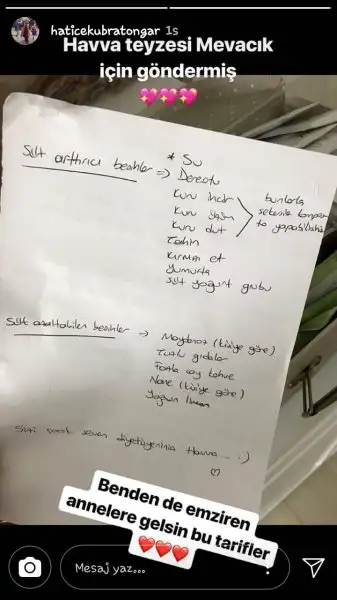 haticekubratongar 1s
Havva teyzesi Mevacık
için göndermiş
Süt arttırıcı besinler => * Su
Dereotu
Kuru incir
Kuru üzüm
Kuru dut
bunlarla
şekersiz kompos-
to yapabilirsiniz
Tahin
Kırmızı et
Yumurta
Süt yoğurt grubu
Süt azaltabilen besinler -> Maydanoz (kişiye göre)
Tuzlu gıdalar
Fazla çay kahve
Nane (kişiye göre)
Yoğun limon
Sizi çok seven diyetisyeniniz Havva ... :)
Benden de emziren
annelere gelsin bu tarifler
Mesaj yaz...